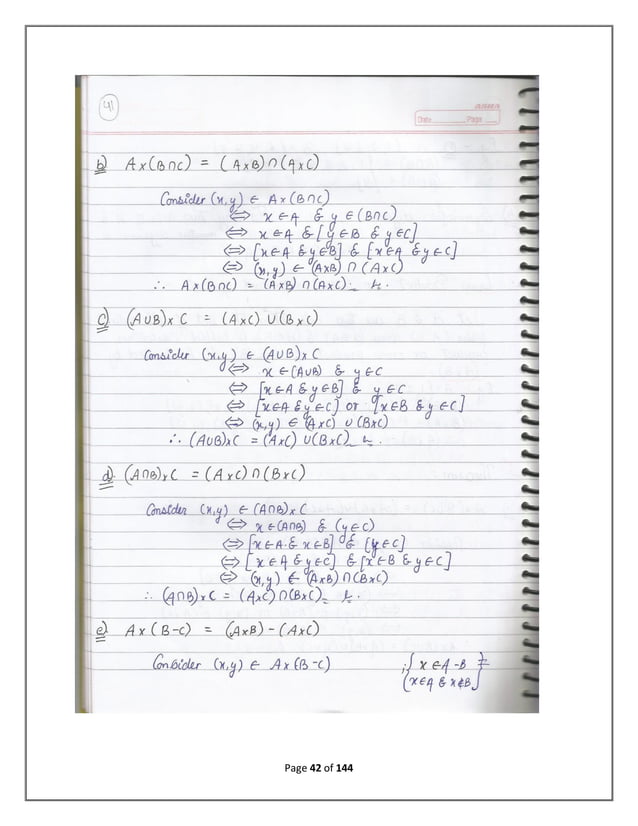 41
ANMA
Date Page
b) A×(B∩C) = (A×B)∩(A×C)
Consider (x,y) ∈ A×(B∩C)
⇔ x∈A & y∈(B∩C)
⇔ x∈A & [y∈B & y∈C]
⇔ [x∈A & y∈B] & [x∈A & y∈C]
⇔ (x,y) ∈ (A×B) ∩ (A×C)
∴ A×(B∩C) = (A×B) ∩(A×C).
c) (A∪B)×C = (A×C) ∪(B×C)
Consider (x,y) ∈ (A∪B)×C
⇔ x∈(A∪B) & y∈C
⇔ [x∈A & y∈B] & y∈C
⇔ [x∈A & y∈C] or [x∈B & y∈C]
⇔ (x,y) ∈ (A×C) ∪ (B×C)
∴ (A∪B)×C = (A×C) ∪(B×C)
d) (A∩B)×C = (A×C)∩(B×C)
Consider (x,y) ∈ (A∩B)×C
⇔ x∈(A∩B) & (y∈C)
⇔ [x∈A & x∈B] & [y∈C]
⇔ [x∈A & y∈C] & [x∈B & y∈C]
⇔ (x,y) ∈ (A×B)∩(B×C)
∴ (A∩B)×C = (A×C)∩(B×C)
e) A×(B-C) = (A×B)-(A×C)
Consider (x,y) ∈ A×(B-C) ; { x∈A-B =
(x∈A & x∉B }
Page 42 of 144